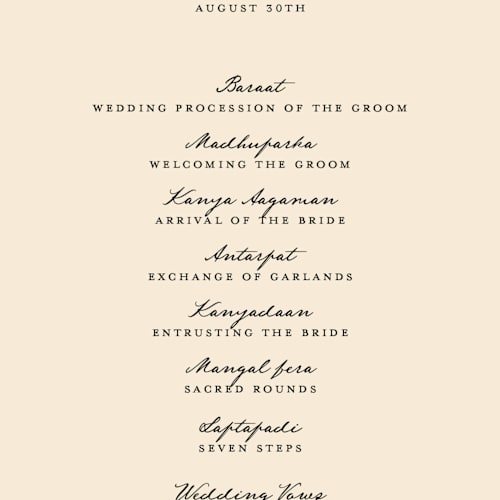 AUGUST 30TH
Baraat
WEDDING PROCESSION OF THE GROOM
Madhuparka
WELCOMING THE GROOM
Kanya Aagaman
ARRIVAL OF THE BRIDE
Antarpat
EXCHANGE OF GARLANDS
Kanyadaan
ENTRUSTING THE BRIDE
Mangal fera
SACRED ROUNDS
Saptapadi
SEVEN STEPS
Wedding Vows